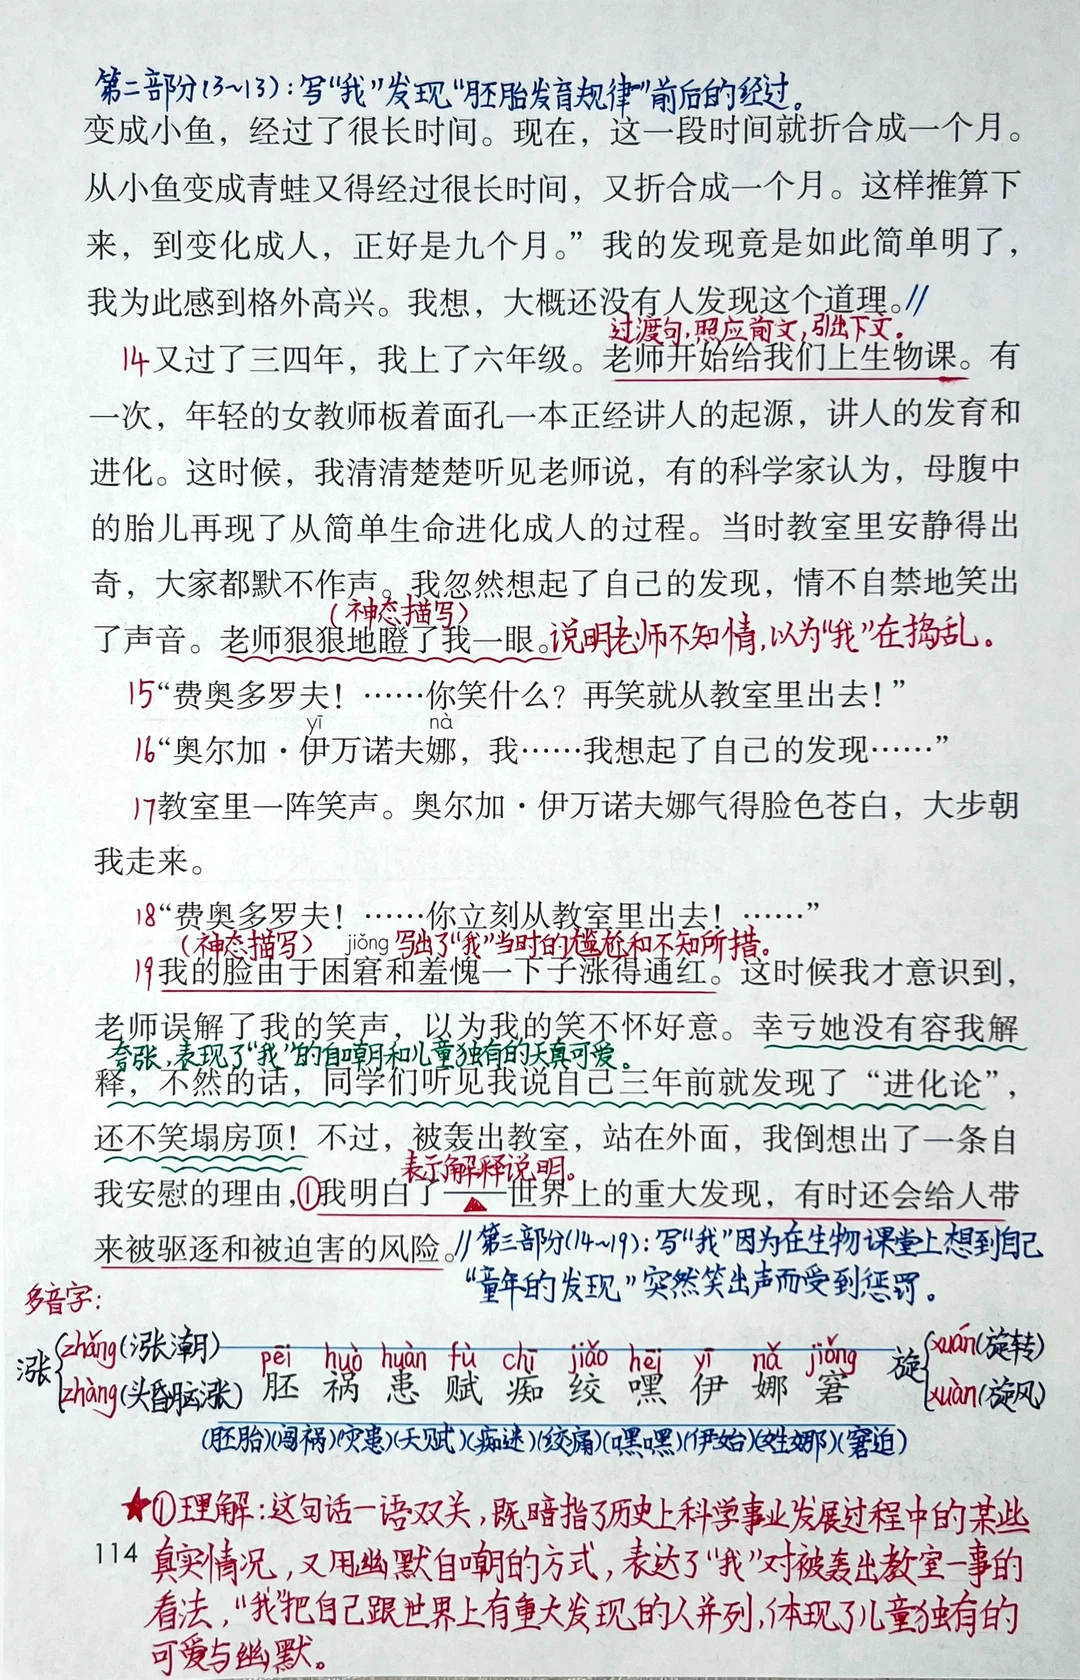 第二部分(3~13)：写“我”发现“胚胎发育规律”前后的经过。
变成小鱼，经过了很长时间。现在，这一段时间就折合成一个月。
从小鱼变成青蛙又得经过很长时间，又折合成一个月。这样推算下
来，到变化成人，正好是九个月。”我的发现竟是如此简单明了，
我为此感到格外高兴。我想，大概还没有人发现这个道理。//
过渡句，照应前文，引出下文。
14又过了三四年，我上了六年级。老师开始给我们上生物课。有
一次，年轻的女教师板着面孔一本正经讲人的起源，讲人的发育和
进化。这时候，我清清楚楚听见老师说，有的科学家认为，母腹中
的胎儿再现了从简单生命进化成人的过程。当时教室里安静得出
奇，大家都默不作声。我忽然想起了自己的发现，情不自禁地笑出
(神态描写)
了声音。老师狠狠地瞪了我一眼。说明老师不知情，以为“我”在捣乱。
15“费奥多罗夫！……你笑什么？再笑就从教室里出去！”
yī nà
16“奥尔加·伊万诺夫娜，我……我想起了自己的发现……”
17教室里一阵笑声。奥尔加·伊万诺夫娜气得脸色苍白，大步朝
我走来。
18“费奥多罗夫！……你立刻从教室里出去！……”
(神态描写) jiǒng 写出了“我”当时的尴尬和不知所措。
19我的脸由于困窘和羞愧一下子涨得通红。这时候我才意识到，
老师误解了我的笑声，以为我的笑不怀好意。幸亏她没有容我解
夸张，表现了“我”的自嘲和儿童独有的天真可爱。
释，不然的话，同学们听见我说自己三年前就发现了“进化论”，
还不笑塌房顶！不过，被轰出教室，站在外面，我倒想出了一条自
表示解释说明。
我安慰的理由，①我明白了——世界上的重大发现，有时还会给人带
来被驱逐和被迫害的风险。//第三部分(14~19)：写“我”因为在生物课堂上想到自己
“童年的发现”突然笑出声而受到惩罚。
多音字：
涨{zhǎng(涨潮) zhàng(头昏脑涨)
pēi huò huàn fù chī jiǎo hēi yī nǎ jiǒng
胚 祸 患 赋 痴 绞 嘿 伊 娜 窘
旋{xuán(旋转) xuàn(旋风)
(胚胎)(闯祸)(灾患)(天赋)(痴迷)(绞痛)(嘿嘿)(伊始)(姓娜)(窘迫)
★①理解：这句话一语双关，既暗指了历史上科学事业发展过程中的某些
114 真实情况，又用幽默自嘲的方式，表达了“我”对被轰出教室一事的
看法，“我”把自己跟世界上有重大发现的人并列，体现了儿童独有的
可爱与幽默。